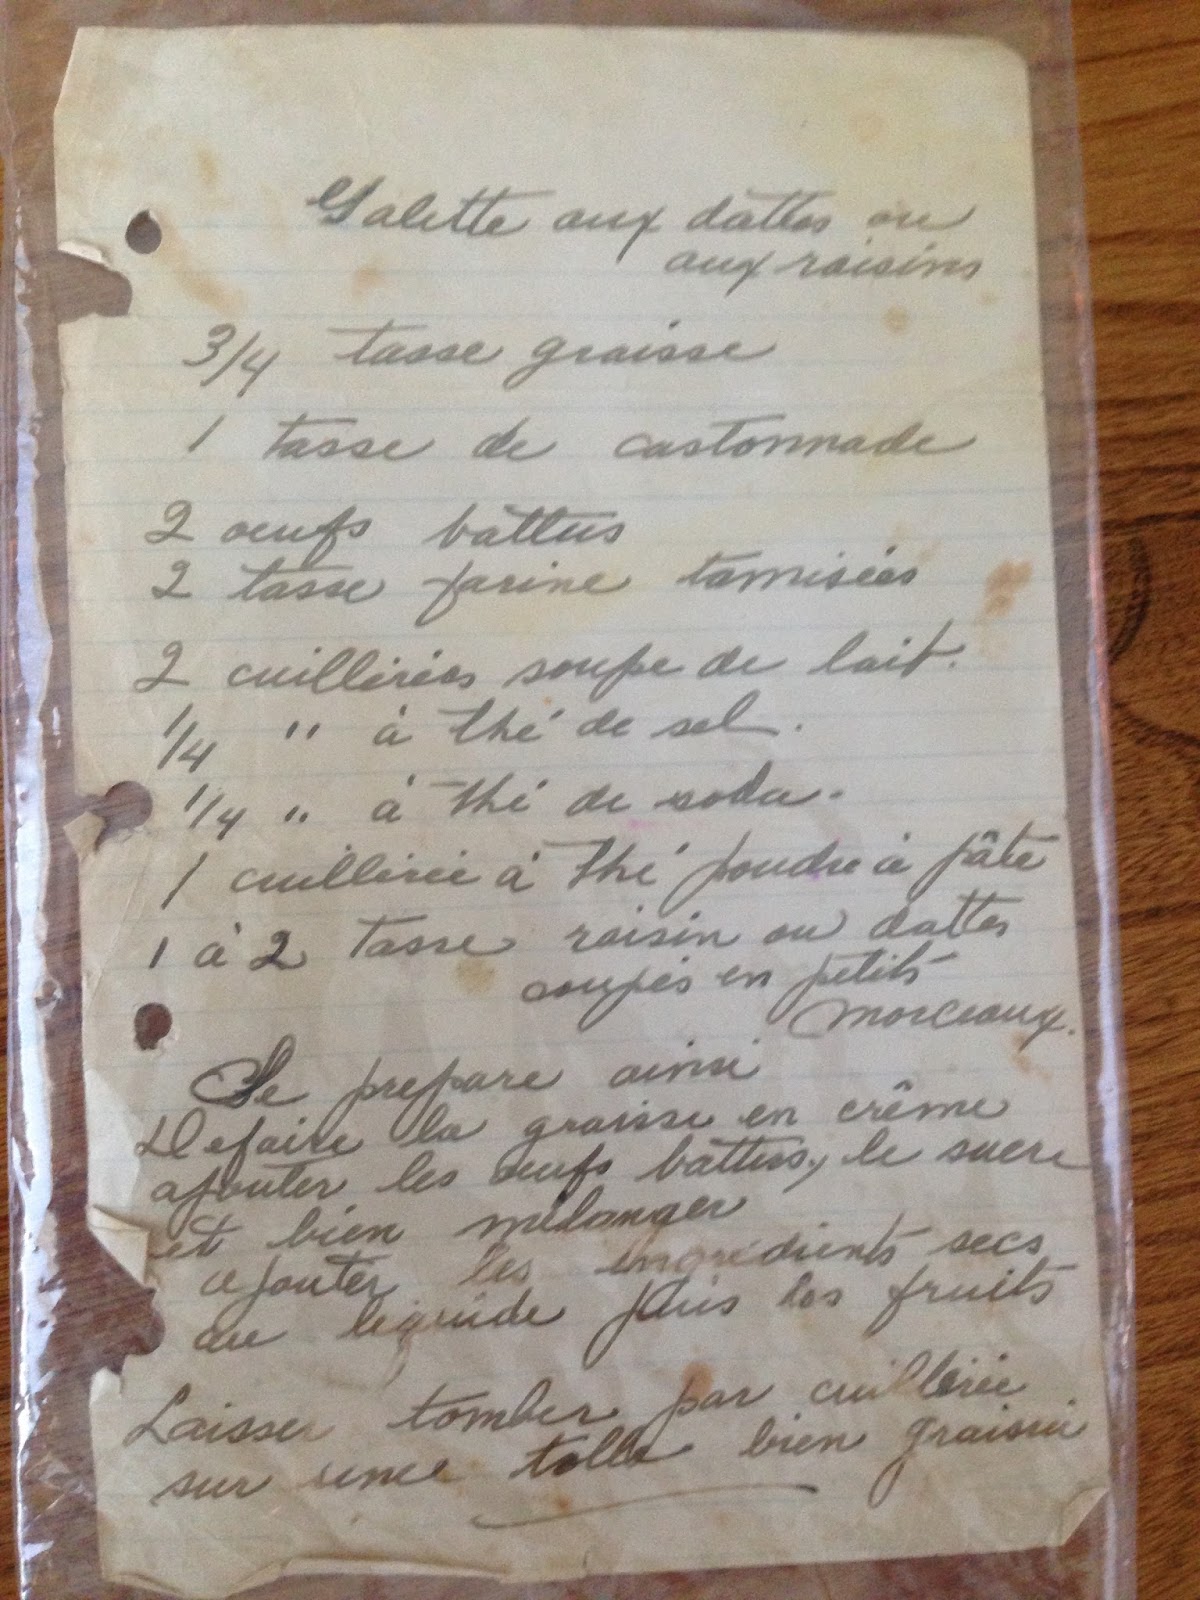 Galette aux dattes ou
aux raisins
3/4 tasse graisse
1 tasse de castonnade
2 oeufs battus
2 tasse farine tamisées
2 cuillérées soupe de lait.
1/4 " à thé de sel.
1/4 " à thé de soda.
1 cuillérée à thé poudre à pâte
1 à 2 tasse raisin ou dattes
coupés en petits
morceaux.
Se prepare ainsi
Defaire la graisse en crême
ajouter les oeufs battus, le sucre
et bien mélanger
ajouter les ingrédients secs
au liquide puis les fruits
Laisser tomber par cuillérée
sur une tolle bien graissée